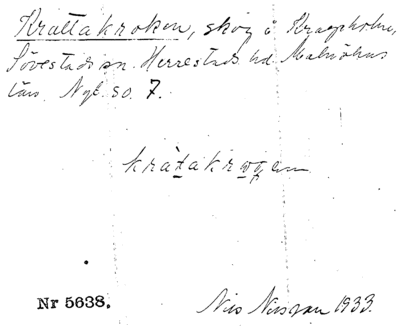 Krattakroken, skog å Krageholm,
Sövestads sn. Herrestads hd. Malmöhus
län. Nyt. so. 7.
kràtakrogen
Nr 5638.
Nils Nilsson 1933.